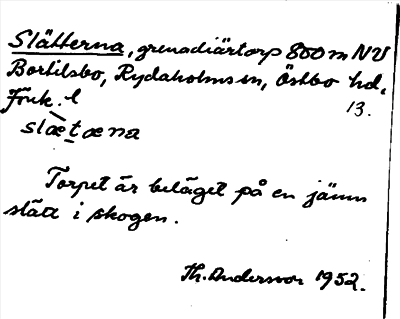 Slätterna, grenadiärtorp 800 m NV
Bortilsbo, Rydaholms sn, Östbo hd,
Jönk. l
13.
slætæna
Torpet är beläget på en jämn
slätt i skogen.
Th. Andersson 1952.